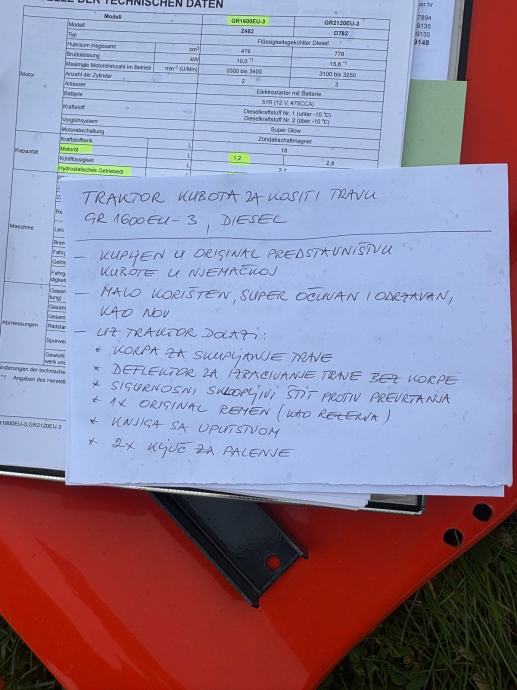 DER TECHNISCHEN DATEN
Modell GR1600EU-3 GR2120EU-3
Modell Z482 D782
Typ Flüssigkeitsgekühlter Diesel
Hubraum insgesamt cm³ 479 778
Bruttoleistung kW 10,0 *1 15,6 *1
Maximale Motordrehzahl im Betrieb min⁻¹ (U/Min) 3300 bis 3400 3100 bis 3250
Anzahl der Zylinder 2 3
Anlasser Elektrostarter mit Batterie
Batterie 51R (12 V, 475CCA)
Kraftstoff Dieselkraftstoff Nr. 1 (unter -10 °C)
Dieselkraftstoff Nr. 2 (über -10 °C)
Vorglühsystem Super Glow
Motorabschaltung Zündabschaltmagnet
Motor
Kapazität
Kraftstofftank L 18
Motoröl L 1,2 2,8
Kühlflüssigkeit L
Hydrostatisches Getriebeöl L
Maschine
Abmessungen
7894
9135
9135
9148
TRAKTOR KUBOTA ZA KOSITI TRAVU
GR1600EU-3, DIESEL
- KUPLJEN U ORIGINAL PREDSTAVNIŠTVU
KUBOTE U NJEMAČKOJ
- MALO KORIŠTEN, SUPER OČUVAN I ODRŽAVAN,
KAO NOV
- UZ TRAKTOR DOLAZI:
* KORPA ZA SKUPLJANJE TRAVE
* DEFLEKTOR ZA IZBACIVANJE TRAVE BEZ KORPE
* SIGURNOSNI SKLOPLJIVI ŠTIT PROTIV PREVRTANJA
* 1X ORIGINAL REMEN (KAO REZERVA)
* KNJIGA SA UPUTSTVOM
* 2X KLJUČ ZA PALENJE
*1 Angaben des Herstell
1600EU-3, GR2120EU-3